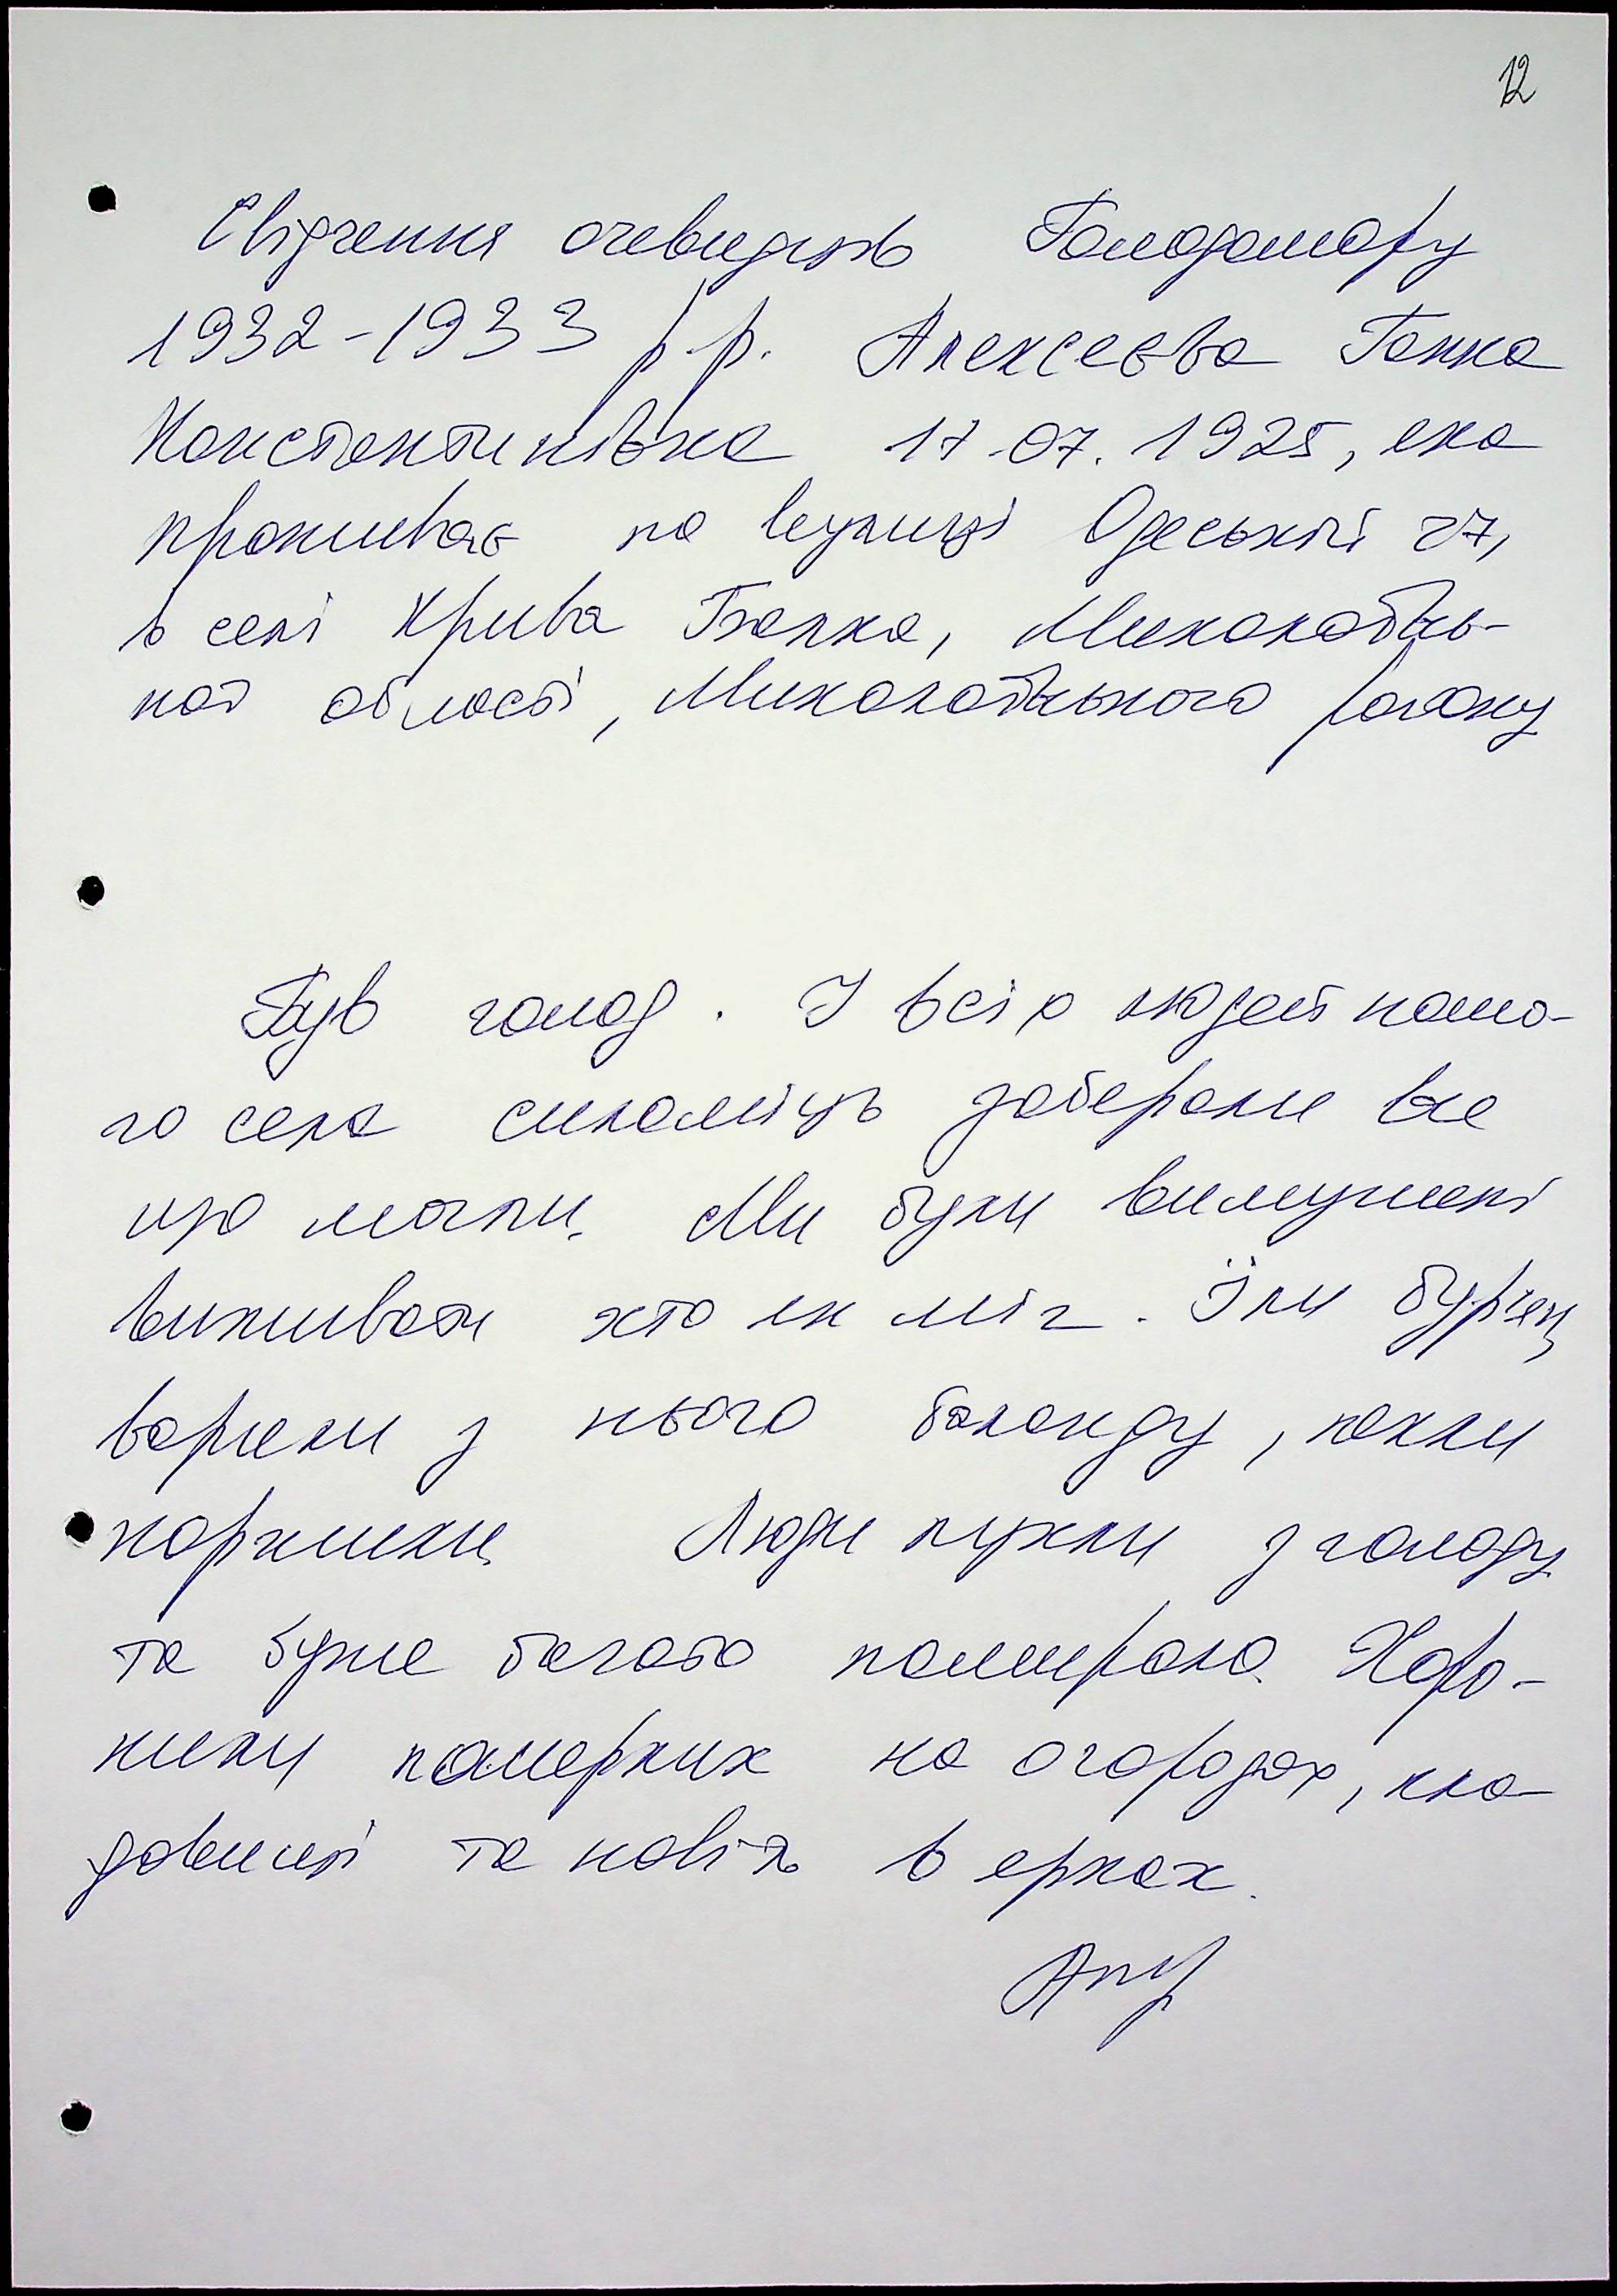 12
Свідчення очевидців Голодомору
1932-1933 р.р. Алексеєва Ганна
Константинівна 17.07.1925, яка
проживає по вулиці Одеській 27,
в селі Крива Балка, Миколаївсь-
кой області, Миколаївського району
Був голод. І всіх людей нашо-
го села силоміць заберали все
що могли. Ми були вимушені
виживати хто як міг. Їли бур'ян,
варили з нього баланду, пекли
коржики. Люди пухли з голоду
та дуже багато помирало. Хоро-
нили померлих на огородах, кла-
довищі та навіть в ярках.